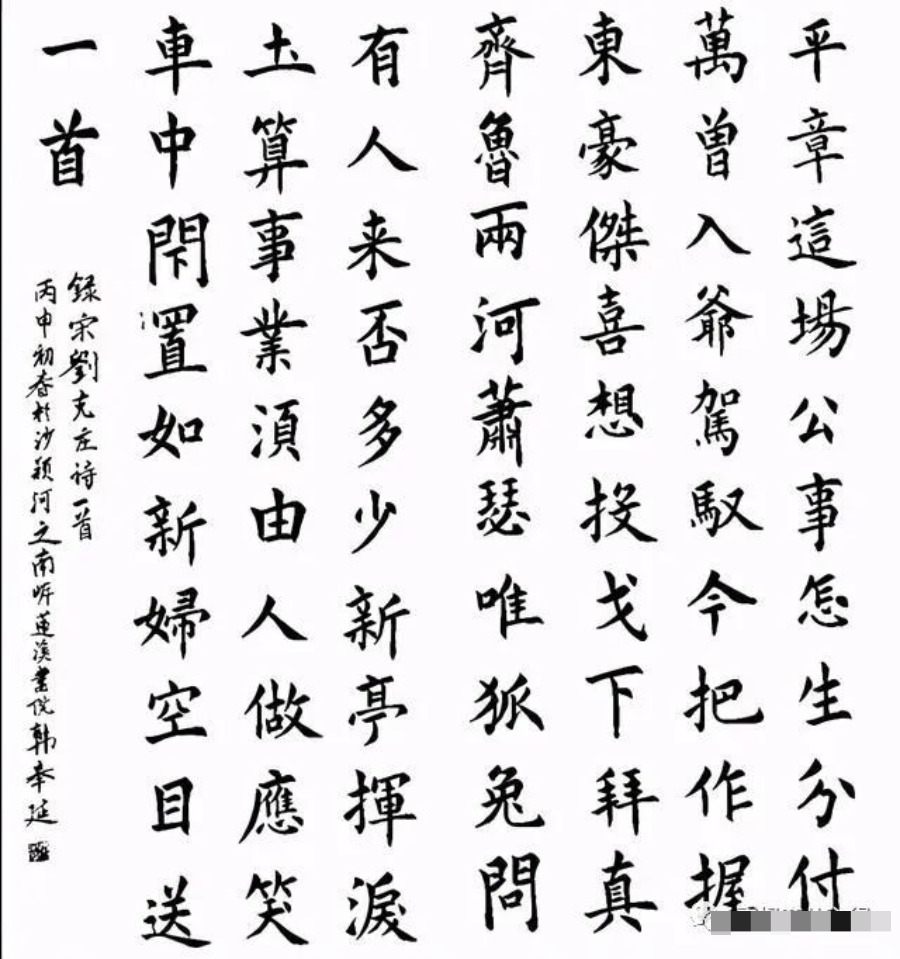 平章這場公事怎生分付
萬曾入爺駕馭今把作握
東豪傑喜想投戈下拜真
齊魯兩河蕭瑟唯狐兔問
有人来否多少新亭揮淚
圡算事業須由人做應笑
車中閇置如新婦空目送
一首
録宋劉克庄诗一首
丙申初春於沙颍河之南岸蓮溪書院韓奉延